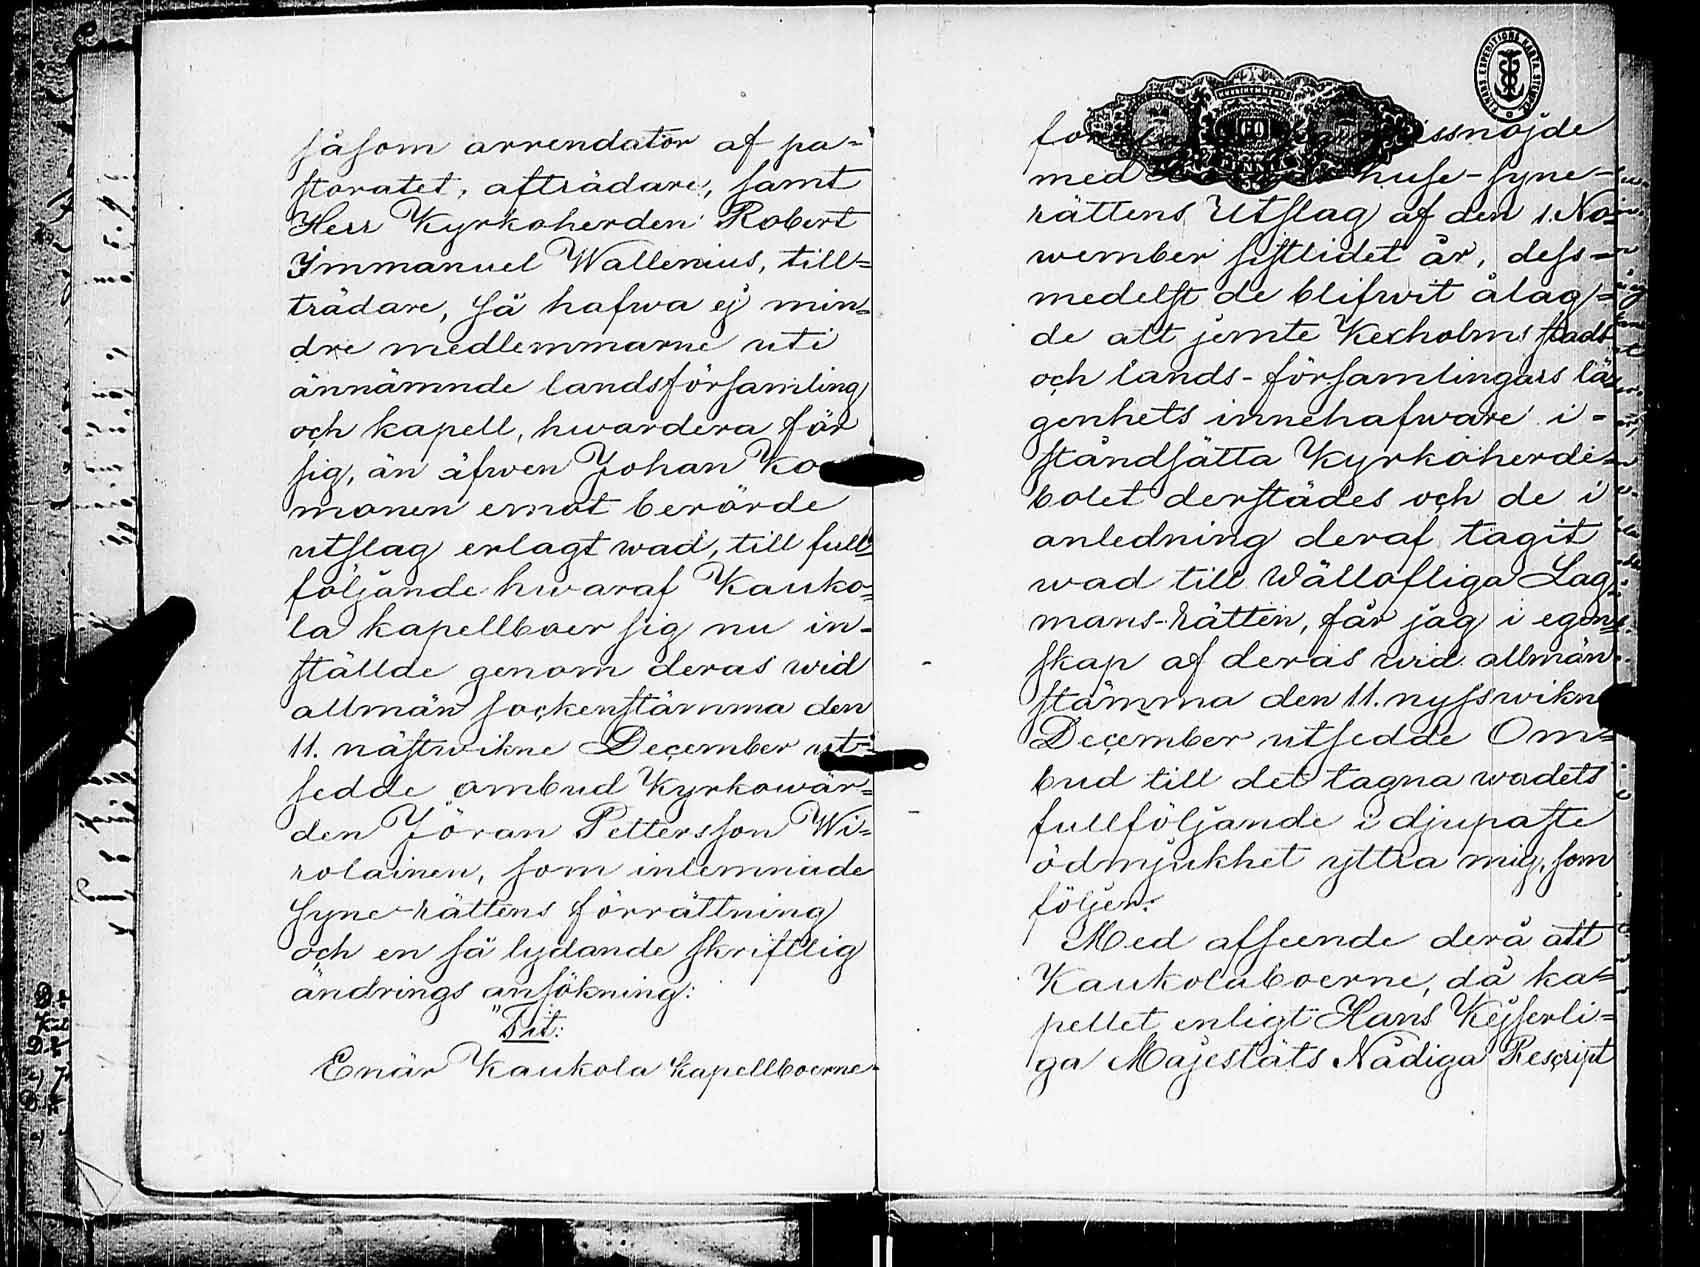 såsom arrendator af pa-
storatet, afträdare, samt
Herr Kyrkoherden Robert
Immanuel Wallenius, till-
trädare, så hafwa ej min-
dre medlemmarne uti
ännämnde landsförsamling
och kapell, hwardera för
sig, än äfwen Johan Ko
monen emot berörde
utslag erlagt wad, till full-
följande hwaraf Kauko-
la kapellboer sig nu in-
ställde genom deras wid
allmän sockenstämma den
11. nästwikne December ut-
sedde ombud Kyrkowär-
den Jöran Pettersson Wi-
rolainen, som inlemnade
Syne-rättens förrättning
och en så lydande skriftlig
ändrings ansökning:
"Tit:
Enär Kaukola kapellboerne
60
issnöjde
med huse-syne-
rättens Utslag af den 1. No-
wember sistlidet år, dess-
medelst de blifwit ålag-
de att jemte Kexholms stads
och lands-församlingars lä-
genhets innehafware i-
ståndsätta Kyrkoherde-
bolet derstädes och de i
anledning deraf tagit
wad till Wällofliga Lag-
mans-rätten, får jag i egen-
skap af deras wid allmän
stämma den 11. nysswikne
December utsedde Om-
bud till det tagna wadets
fullföljande i djupaste
ödmjukhet yttra mig, som
följer:
Med afseende derå att
Kaukolaboerne, då ka-
pellet enligt Hans Kejserli-
ga Majestäts Nådiga Rescript